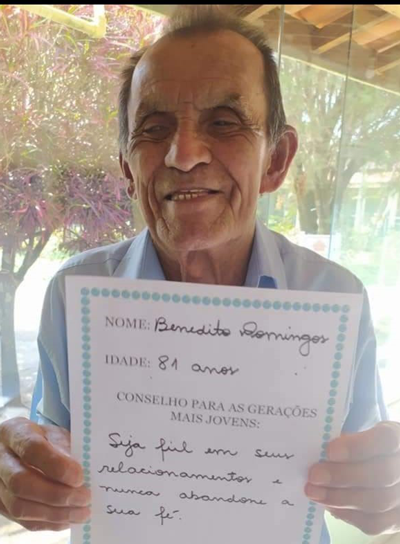 NOME: Benedito Domingos
IDADE: 81 anos
CONSELHO PARA AS GERAÇÕES
MAIS JOVENS:
Seja fiel em seus
relacionamentos e
nunca abandone a
sua fé.